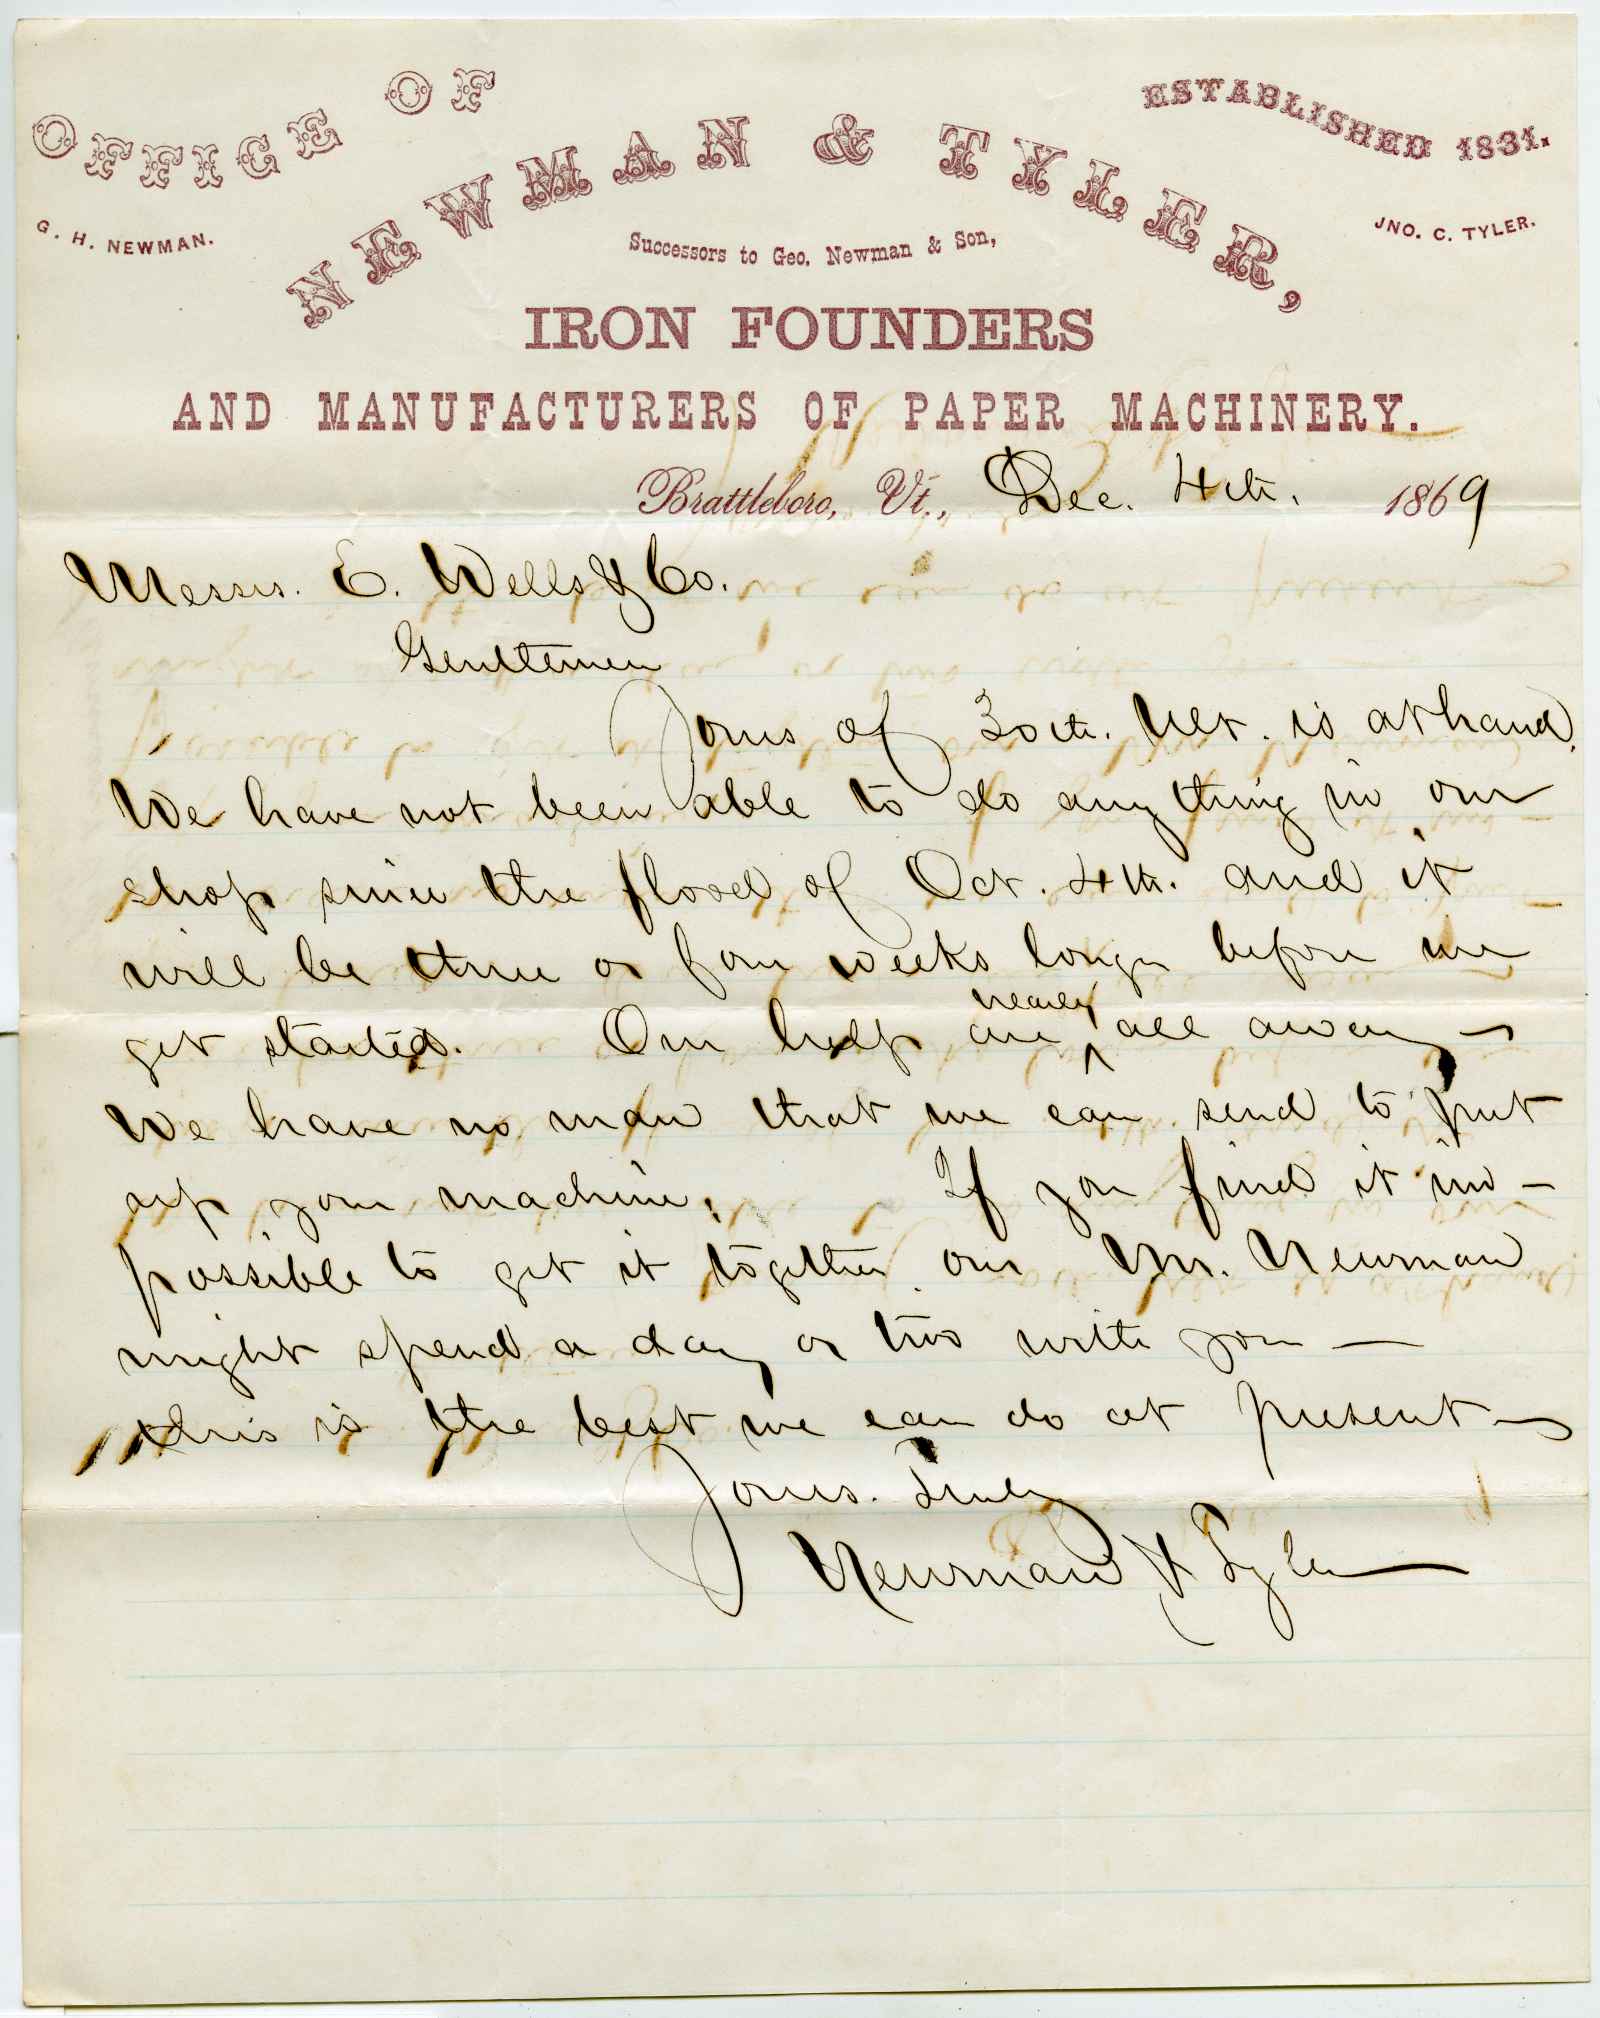 OFFICE OF
ESTABLISHED 1831.
NEWMAN & TYLER,
G. H. NEWMAN.
JNO. C. TYLER.
Successors to Geo. Newman & Son,
IRON FOUNDERS
AND MANUFACTURERS OF PAPER MACHINERY.
Brattleboro, Vt., Dec. 4th. 1869
Messrs. E. Wells & Co.
Gentlemen
Yours of 30th. Ult. is at hand.
We have not been able to do any thing in our
shop since the flood of Oct. 4th. and it
will be three or four weeks longer before we
get started. Our help are nearly all away –
We have no man that we can send to put
up your machine. If you find it im-
possible to get it together our Mr. Newman
might spend a day or two with you —
this is the best we can do at present –
Yours. Truly
Newman & Tyler